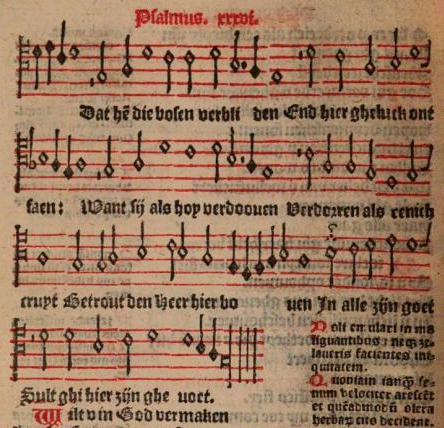 Psalmus. xxxvi.
Dat hē die bosen verbli den End hier gheluck ont
faen: Want sij als hoy verdoouen Verdorren als eenich
cruyt Betrout den Heer hier bo uen In alle zijn goet
Sult ghi hier zijn ghe uoet.
Wilt v in God vermaken
Noli emulari in ma
lignantibus: neqz ze-
laueris facientes ini-
quitatem.
Quoniam tanqͫ fe-
num velociter arescēt
et quēadmodū olera
herbaꝝ cito decident.